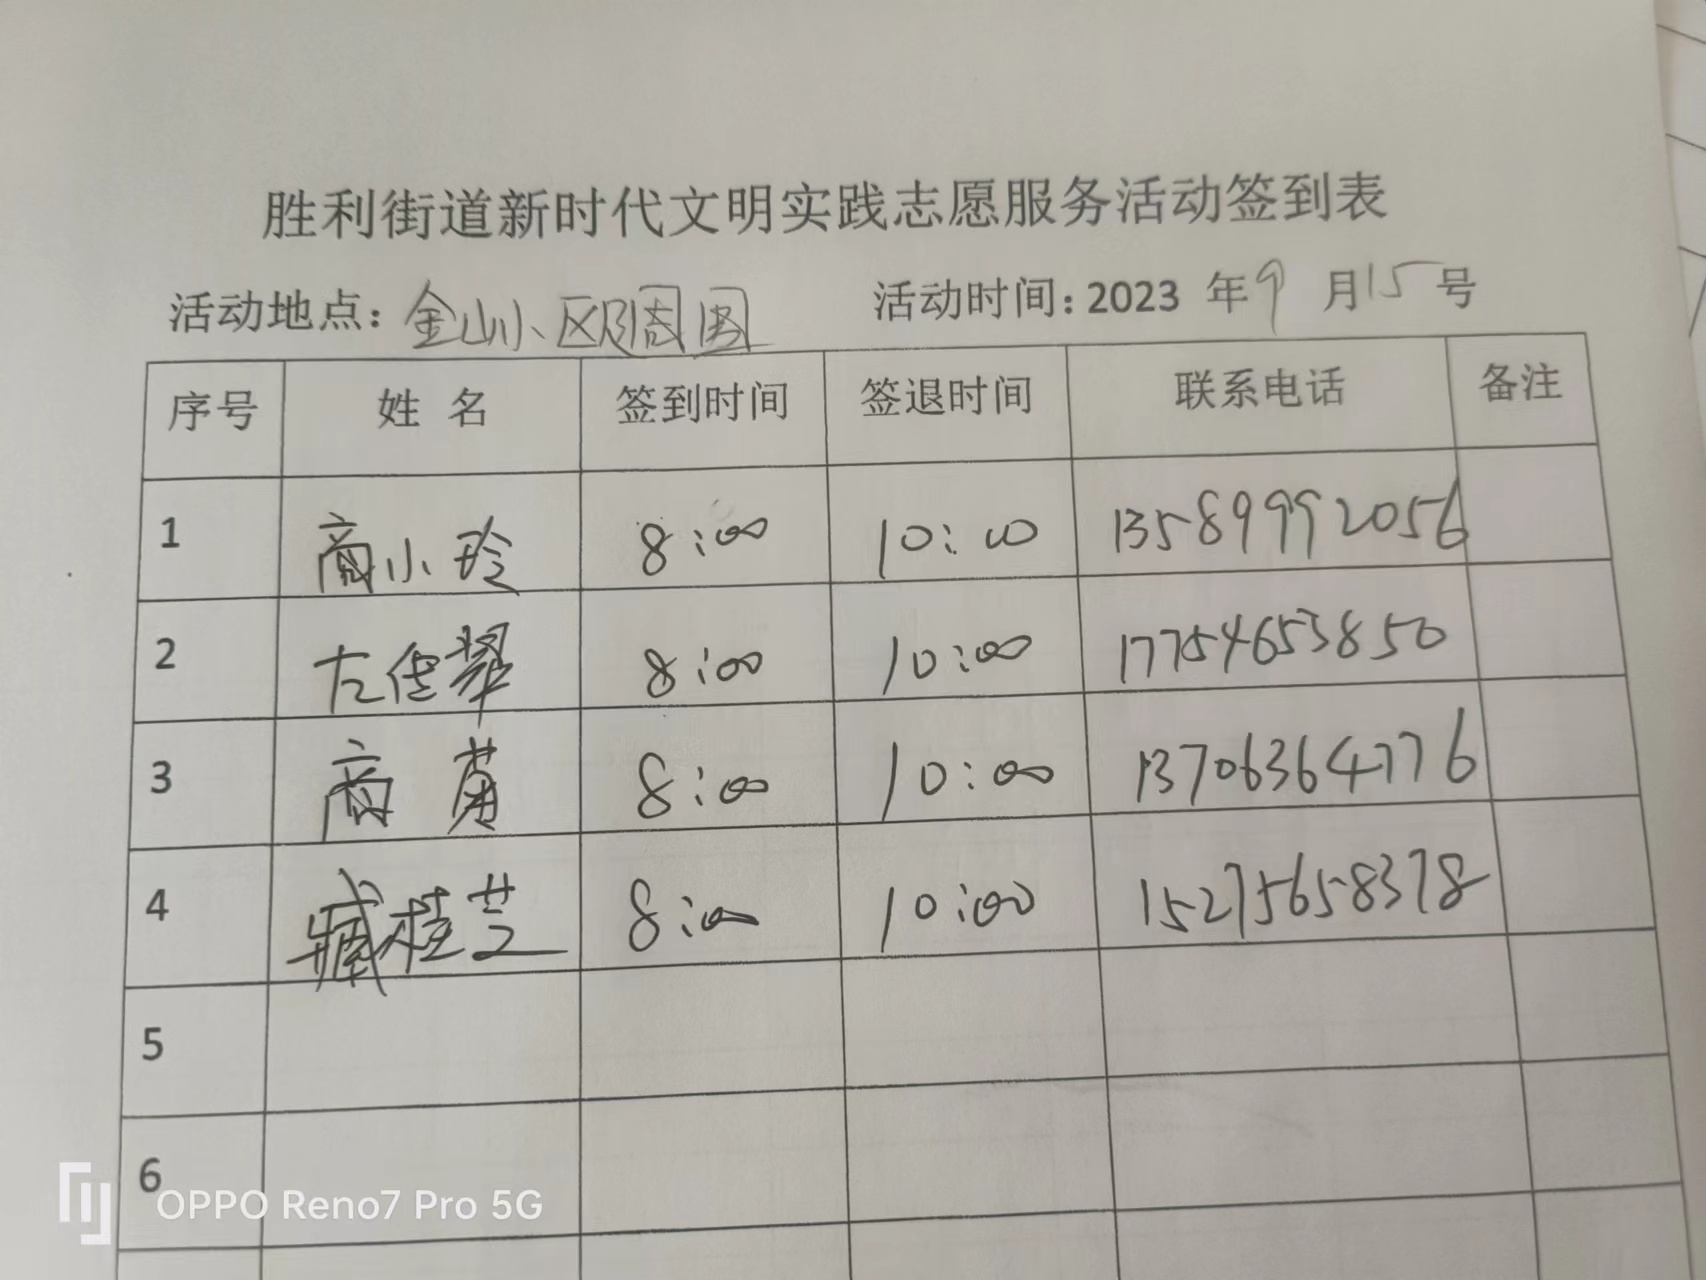 胜利街道新时代文明实践志愿服务活动签到表
活动地点：金山小区周围 活动时间：2023 年 9 月 15 号
序号 姓 名 签到时间 签退时间 联系电话 备注
1 商小玲 8:00 10:00 13589992056
2 左传翠 8:00 10:00 17754653850
3 商 8:00 10:00 13706364776
4 臧桂芝 8:00 10:00 15275658378
5
6
OPPO Reno7 Pro 5G